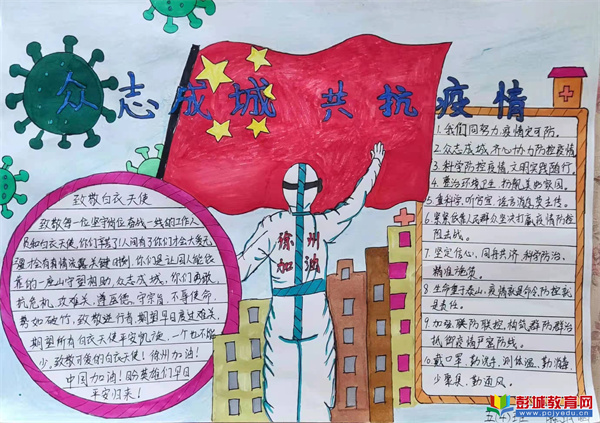 众志成城 共抗疫情
致敬白衣天使
致敬每一位坚守岗位奋战一线的工作人
员和白衣天使,你们
有情
关键时刻,你们是让国人能依
靠的一座山守望相助,众志成城,你们勇敢
抗危机,攻难关,
不辱使命,
势如破竹,致敬逆行者,期望早日度过难关,
期望所有白衣天使平安凯旋,一个也不能
少,致敬可爱的白衣天使!徐州加油!
中国加油!盼英雄们早日
平安归来!
徐州
加油
1.我们同努力,疫情定可防。
2.众志成城,齐心协力防控疫情
3.科学防控疫情,文明实践随行。
4.整治环境卫生,扮靓美如家园。
5.重科学,听官宣,谣言消息莫去传。
6.紧紧依靠人民群众坚决打赢疫情防控
阻击战。
7.坚定信心,同舟共济,科学防治,
精准施策。
8.生命重于泰山,疫情就是命令,防控就
是责任。
9.加强联防联控,构筑群防群治
抵御疫情严密防线。
10.戴口罩,勤洗手,测体温,勤消毒,
少聚集,勤通风。
彭城教育网
www.pcjyedu.cn